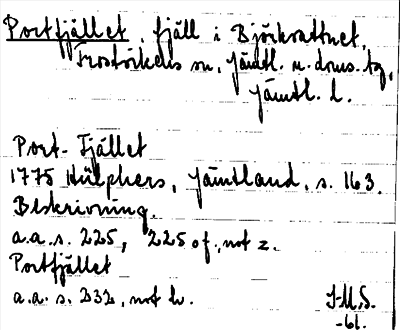 Portfjället, fjäll i Björkvattnet,
Frostvikens sn, Jämtl. n. doms. tg,
Jämtl. l.
Port-Fjället
1775 Hülphers, Jämtland, s. 163.
Beskrivning.
a.a.s. 225, 225 of., not z.
Portfjället
a.a. s. 232, not b.
-61.